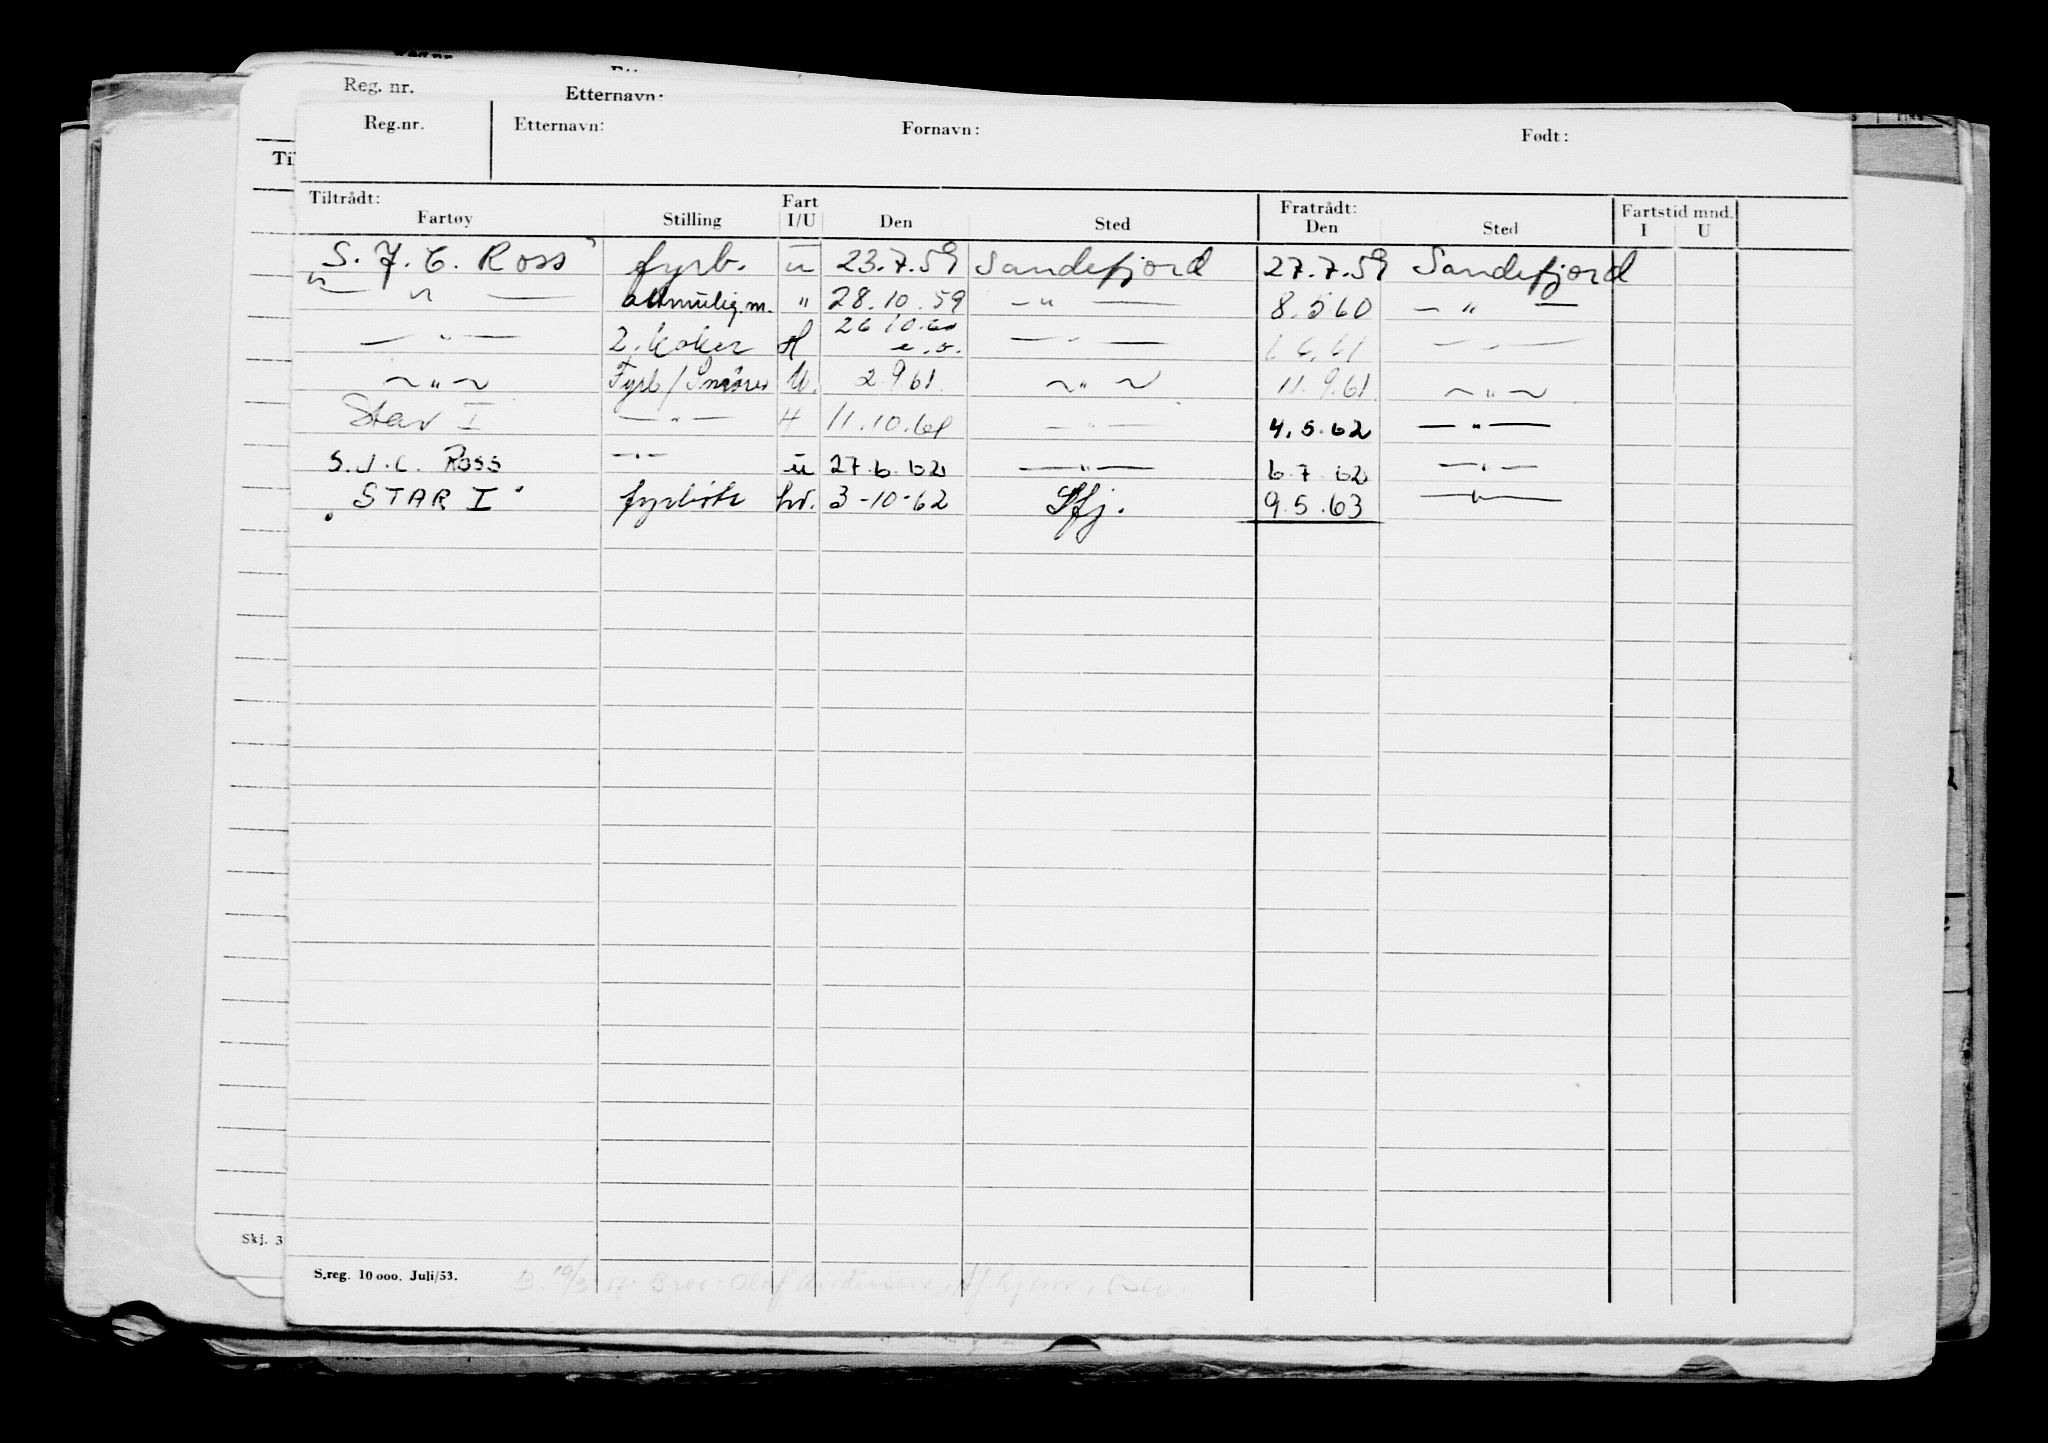 Reg. nr. Etternavn:
Reg.nr. Etternavn: Fornavn: Født:
Til
Tiltrådt: Fart Fratrådt: Fartstid mnd.
Fartøy Stilling I/U Den Sted Den Sted I U
"S. J. C. Ross" fyrb. u 23.7.59 Sandefjord 27.7.59 Sandefjord
— " — altmulig.m. " 28.10.59 — " — 8.5.60 — " —
— " — 2. koker H 26.10.60 — " — — " —
~ " ~ Fyrb/Smører U. 2.9.61. ~ " ~ 11.9.61. ~ " ~
Star I — " — H 11.10.61 — " — 4.5.62 — " —
S. J. C. Ross — " — u 27.6.62 — " — 6.7.62 — " —
"STAR I" fyrbøter hv. 3-10-62 Sfj. 9.5.63 — " —
Skj. 3
S.reg. 10 000. Juli/53. Bror: Olaf Andersen, Oslo.